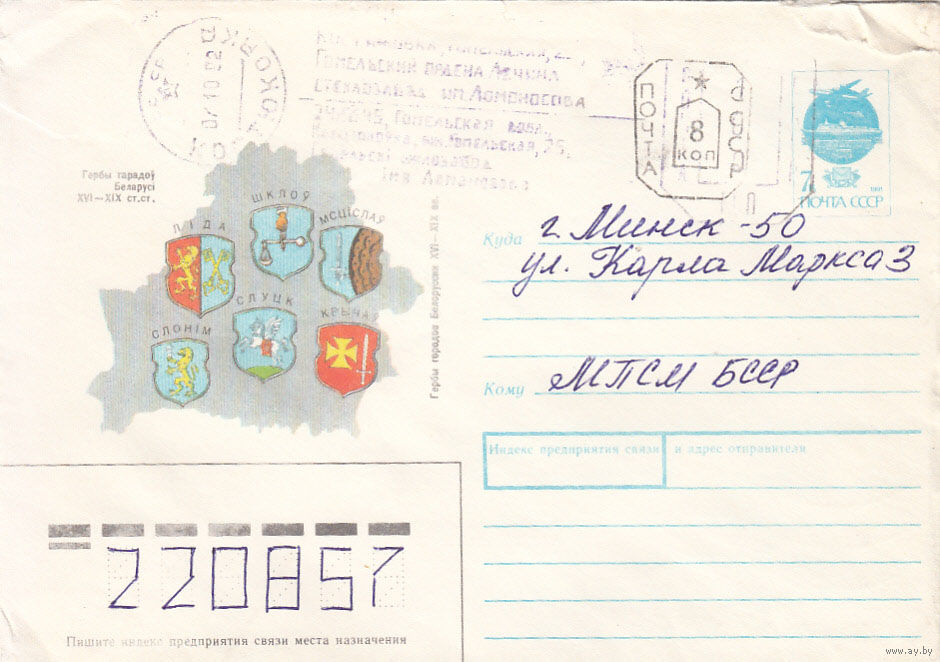 Гомельский ордена Ленина
стеклозавод им. Ломоносова
Гомельская обл.,
Гомельская, 25,
імя Ламаносава
07 10 92
ПОЧТА
СССР
8
КОП
7
1991
ПОЧТА СССР
Гербы гарадоў
Беларусі
XVI—XIX ст.ст.
ЛІДА
ШКЛОЎ
МСЦІСЛАЎ
СЛОНІМ
СЛУЦК
КРЫЧАЎ
Гербы городов Белоруссии XVI—XIX вв.
Куда г. Минск -50
ул. Карла Маркса 3
Кому МПСМ БССР
Индекс предприятия связи и адрес отправителя
220857
Пишите индекс предприятия связи места назначения
www.ay.by